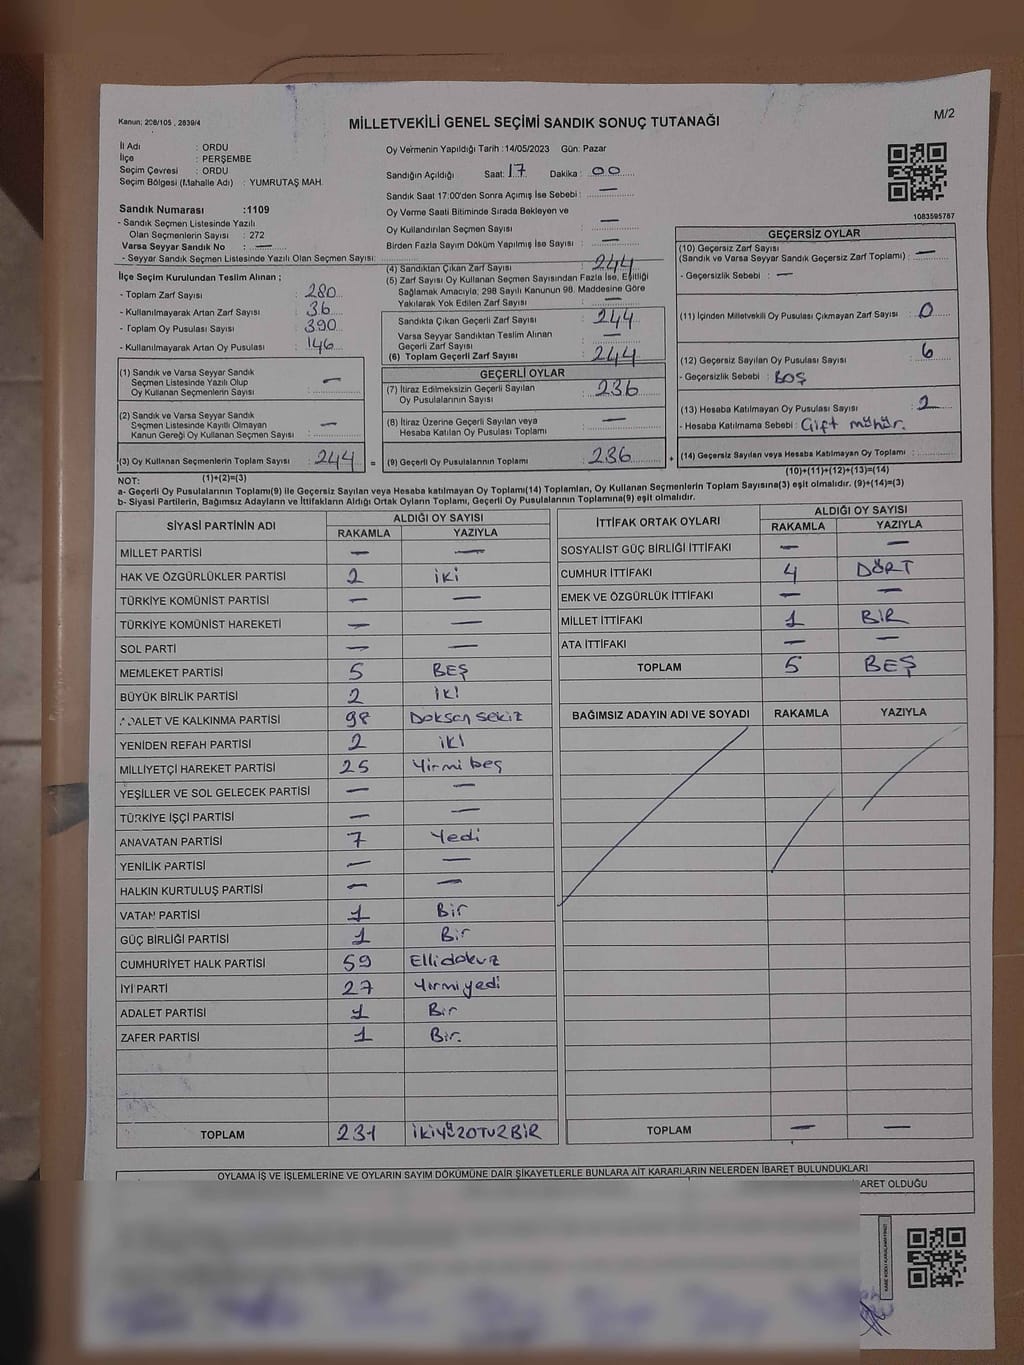 Kanun: 298/105 , 2839/4
MİLLETVEKİLİ GENEL SEÇİMİ SANDIK SONUÇ TUTANAĞI
M/2
İl Adı : ORDU
İlçe : PERŞEMBE
Seçim Çevresi : ORDU
Seçim Bölgesi (Mahalle Adı) : YUMRUTAŞ MAH.
Sandık Numarası :1109
- Sandık Seçmen Listesinde Yazılı
Olan Seçmenlerin Sayısı : 272
Varsa Seyyar Sandık No : —
- Seyyar Sandık Seçmen Listesinde Yazılı Olan Seçmen Sayısı:
İlçe Seçim Kurulundan Teslim Alınan ;
- Toplam Zarf Sayısı : 280
- Kullanılmayarak Artan Zarf Sayısı : 36
- Toplam Oy Pusulası Sayısı : 390
- Kullanılmayarak Artan Oy Pusulası : 146
(1) Sandık ve Varsa Seyyar Sandık
Seçmen Listesinde Yazılı Olup
Oy Kullanan Seçmenlerin Sayısı : —
(2) Sandık ve Varsa Seyyar Sandık
Seçmen Listesinde Kayıtlı Olmayan
Kanun Gereği Oy Kullanan Seçmen Sayısı : —
(3) Oy Kullanan Seçmenlerin Toplam Sayısı : 244 =
Oy Vermenin Yapıldığı Tarih :14/05/2023 Gün: Pazar
Sandığın Açıldığı Saat: 17 Dakika : 00
Sandık Saat 17:00'den Sonra Açımış İse Sebebi : —
Oy Verme Saati Bitiminde Sırada Bekleyen ve
Oy Kullandırılan Seçmen Sayısı : —
Birden Fazla Sayım Döküm Yapılmış İse Sayısı : —
(4) Sandıktan Çıkan Zarf Sayısı : 244
(5) Zarf Sayısı Oy Kullanan Seçmen Sayısından Fazla İse, Eşitliği
Sağlamak Amacıyla; 298 Sayılı Kanunun 98. Maddesine Göre
Yakılarak Yok Edilen Zarf Sayısı : —
Sandıkta Çıkan Geçerli Zarf Sayısı : 244
Varsa Seyyar Sandıktan Teslim Alınan
Geçerli Zarf Sayısı : —
(6) Toplam Geçerli Zarf Sayısı : 244
GEÇERLİ OYLAR
(7) İtiraz Edilmeksizin Geçerli Sayılan
Oy Pusulalarının Sayısı : 236
(8) İtiraz Üzerine Geçerli Sayılan veya
Hesaba Katılan Oy Pusulası Toplamı : —
(9) Geçerli Oy Pusulalarının Toplamı : 236 +
1083595787
GEÇERSİZ OYLAR
(10) Geçersiz Zarf Sayısı
(Sandık ve Varsa Seyyar Sandık Geçersiz Zarf Toplamı) : —
- Geçersizlik Sebebi : —
(11) İçinden Milletvekili Oy Pusulası Çıkmayan Zarf Sayısı : 0
(12) Geçersiz Sayılan Oy Pusulası Sayısı : 6
- Geçersizlik Sebebi : BOŞ
(13) Hesaba Katılmayan Oy Pusulası Sayısı : 2
- Hesaba Katılmama Sebebi : Çift mühür.
(14) Geçersiz Sayılan veya Hesaba Katılmayan Oy Toplamı :
(1)+(2)=(3)
(10)+(11)+(12)+(13)=(14)
NOT:
a- Geçerli Oy Pusulalarının Toplamı(9) ile Geçersiz Sayılan veya Hesaba katılmayan Oy Toplamı(14) Toplamları, Oy Kullanan Seçmenlerin Toplam Sayısına(3) eşit olmalıdır. (9)+(14)=(3)
b- Siyasi Partilerin, Bağımsız Adayların ve İttifakların Aldığı Ortak Oyların Toplamı, Geçerli Oy Pusulalarının Toplamına(9) eşit olmalıdır.
SİYASİ PARTİNİN ADI ALDIĞI OY SAYISI
RAKAMLA YAZIYLA
MİLLET PARTİSİ — —
HAK VE ÖZGÜRLÜKLER PARTİSİ 2 iki
TÜRKİYE KOMÜNİST PARTİSİ — —
TÜRKİYE KOMÜNİST HAREKETİ — —
SOL PARTİ — —
MEMLEKET PARTİSİ 5 BEŞ
BÜYÜK BİRLİK PARTİSİ 2 iki
ADALET VE KALKINMA PARTİSİ 98 Doksan sekiz
YENİDEN REFAH PARTİSİ 2 iki
MİLLİYETÇİ HAREKET PARTİSİ 25 Yirmi beş
YEŞİLLER VE SOL GELECEK PARTİSİ — —
TÜRKİYE İŞÇİ PARTİSİ — —
ANAVATAN PARTİSİ 7 Yedi
YENİLİK PARTİSİ — —
HALKIN KURTULUŞ PARTİSİ — —
VATAN PARTİSİ 1 Bir
GÜÇ BİRLİĞİ PARTİSİ 1 Bir
CUMHURİYET HALK PARTİSİ 59 Ellidokuz
İYİ PARTİ 27 Yirmiyedi
ADALET PARTİSİ 1 Bir
ZAFER PARTİSİ 1 Bir.
TOPLAM 231 İKİYÜZOTUZBİR
İTTİFAK ORTAK OYLARI ALDIĞI OY SAYISI
RAKAMLA YAZIYLA
SOSYALİST GÜÇ BİRLİĞİ İTTİFAKI — —
CUMHUR İTTİFAKI 4 DÖRT
EMEK VE ÖZGÜRLÜK İTTİFAKI — —
MİLLET İTTİFAKI 1 BİR
ATA İTTİFAKI — —
TOPLAM 5 BEŞ
BAĞIMSIZ ADAYIN ADI VE SOYADI RAKAMLA YAZIYLA
TOPLAM — —
OYLAMA İŞ VE İŞLEMLERİNE VE OYLARIN SAYIM DÖKÜMÜNE DAİR ŞİKAYETLERLE BUNLARA AİT KARARLARIN NELERDEN İBARET BULUNDUKLARI
ARET OLDUĞU